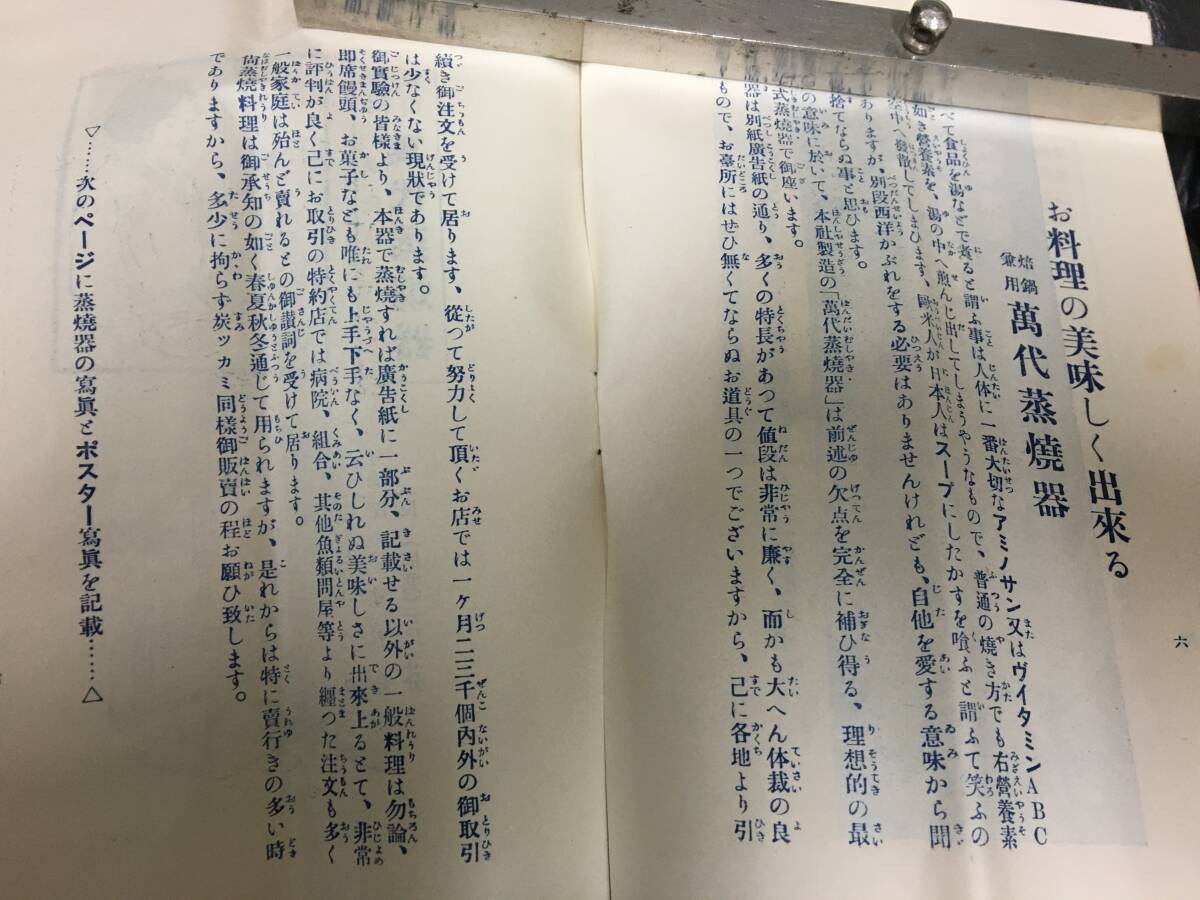 六
お料理の美味しく出來る
焙鍋兼用 萬代蒸燒器
べて食品を湯などで煑ると謂ふ事は人体に一番大切なアミノサン又はヴイタミンABC
如き營養素を、湯の中へ煎んじ出してしまうやうなもので、普通の燒き方でも右營養素
空中へ發散してしまひます、歐米人が日本人はスープにしたかすを喰ふと謂ふて笑ふの
ありますが、別段西洋かぶれをする必要はありませんけれども、自他を愛する意味から聞
捨てならぬ事と思ひます。
の意味に於いて、本社製造の「萬代蒸燒器」は前述の欠点を完全に補ひ得る、理想的の最
式蒸燒器で御座います。
器は別紙廣告紙の通り、多くの特長があつて値段は非常に廉く、而かも大へん体裁の良
もので、お臺所にはぜひ無くてならぬお道具の一つでございますから、己に各地より引
續き御注文を受けて居ります、從つて努力して頂くお店では一ケ月二三千個內外の御取引
は少なくない現狀であります。
御實驗の皆様より、本器で蒸燒すれば廣告紙に一部分、記載せる以外の一般料理は勿論、
即席饅頭、お菓子なども唯にも上手下手なく、云ひしれぬ美味しさに出來上るとて、非常
に評判が良く己にお取引の特約店では病院、組合、其他魚類問屋等より纒つた注文も多く
一般家庭は殆んど賣れるとの御讃詞を受けて居ります。
尙蒸燒料理は御承知の如く春夏秋冬通じて用られますが、是れからは特に賣行きの多い時
でありますから、多少に拘らず炭ッカミ同様御販賣の程お願ひ致します。
▽……次のページに蒸燒器の寫眞とポスター寫眞を記載……△